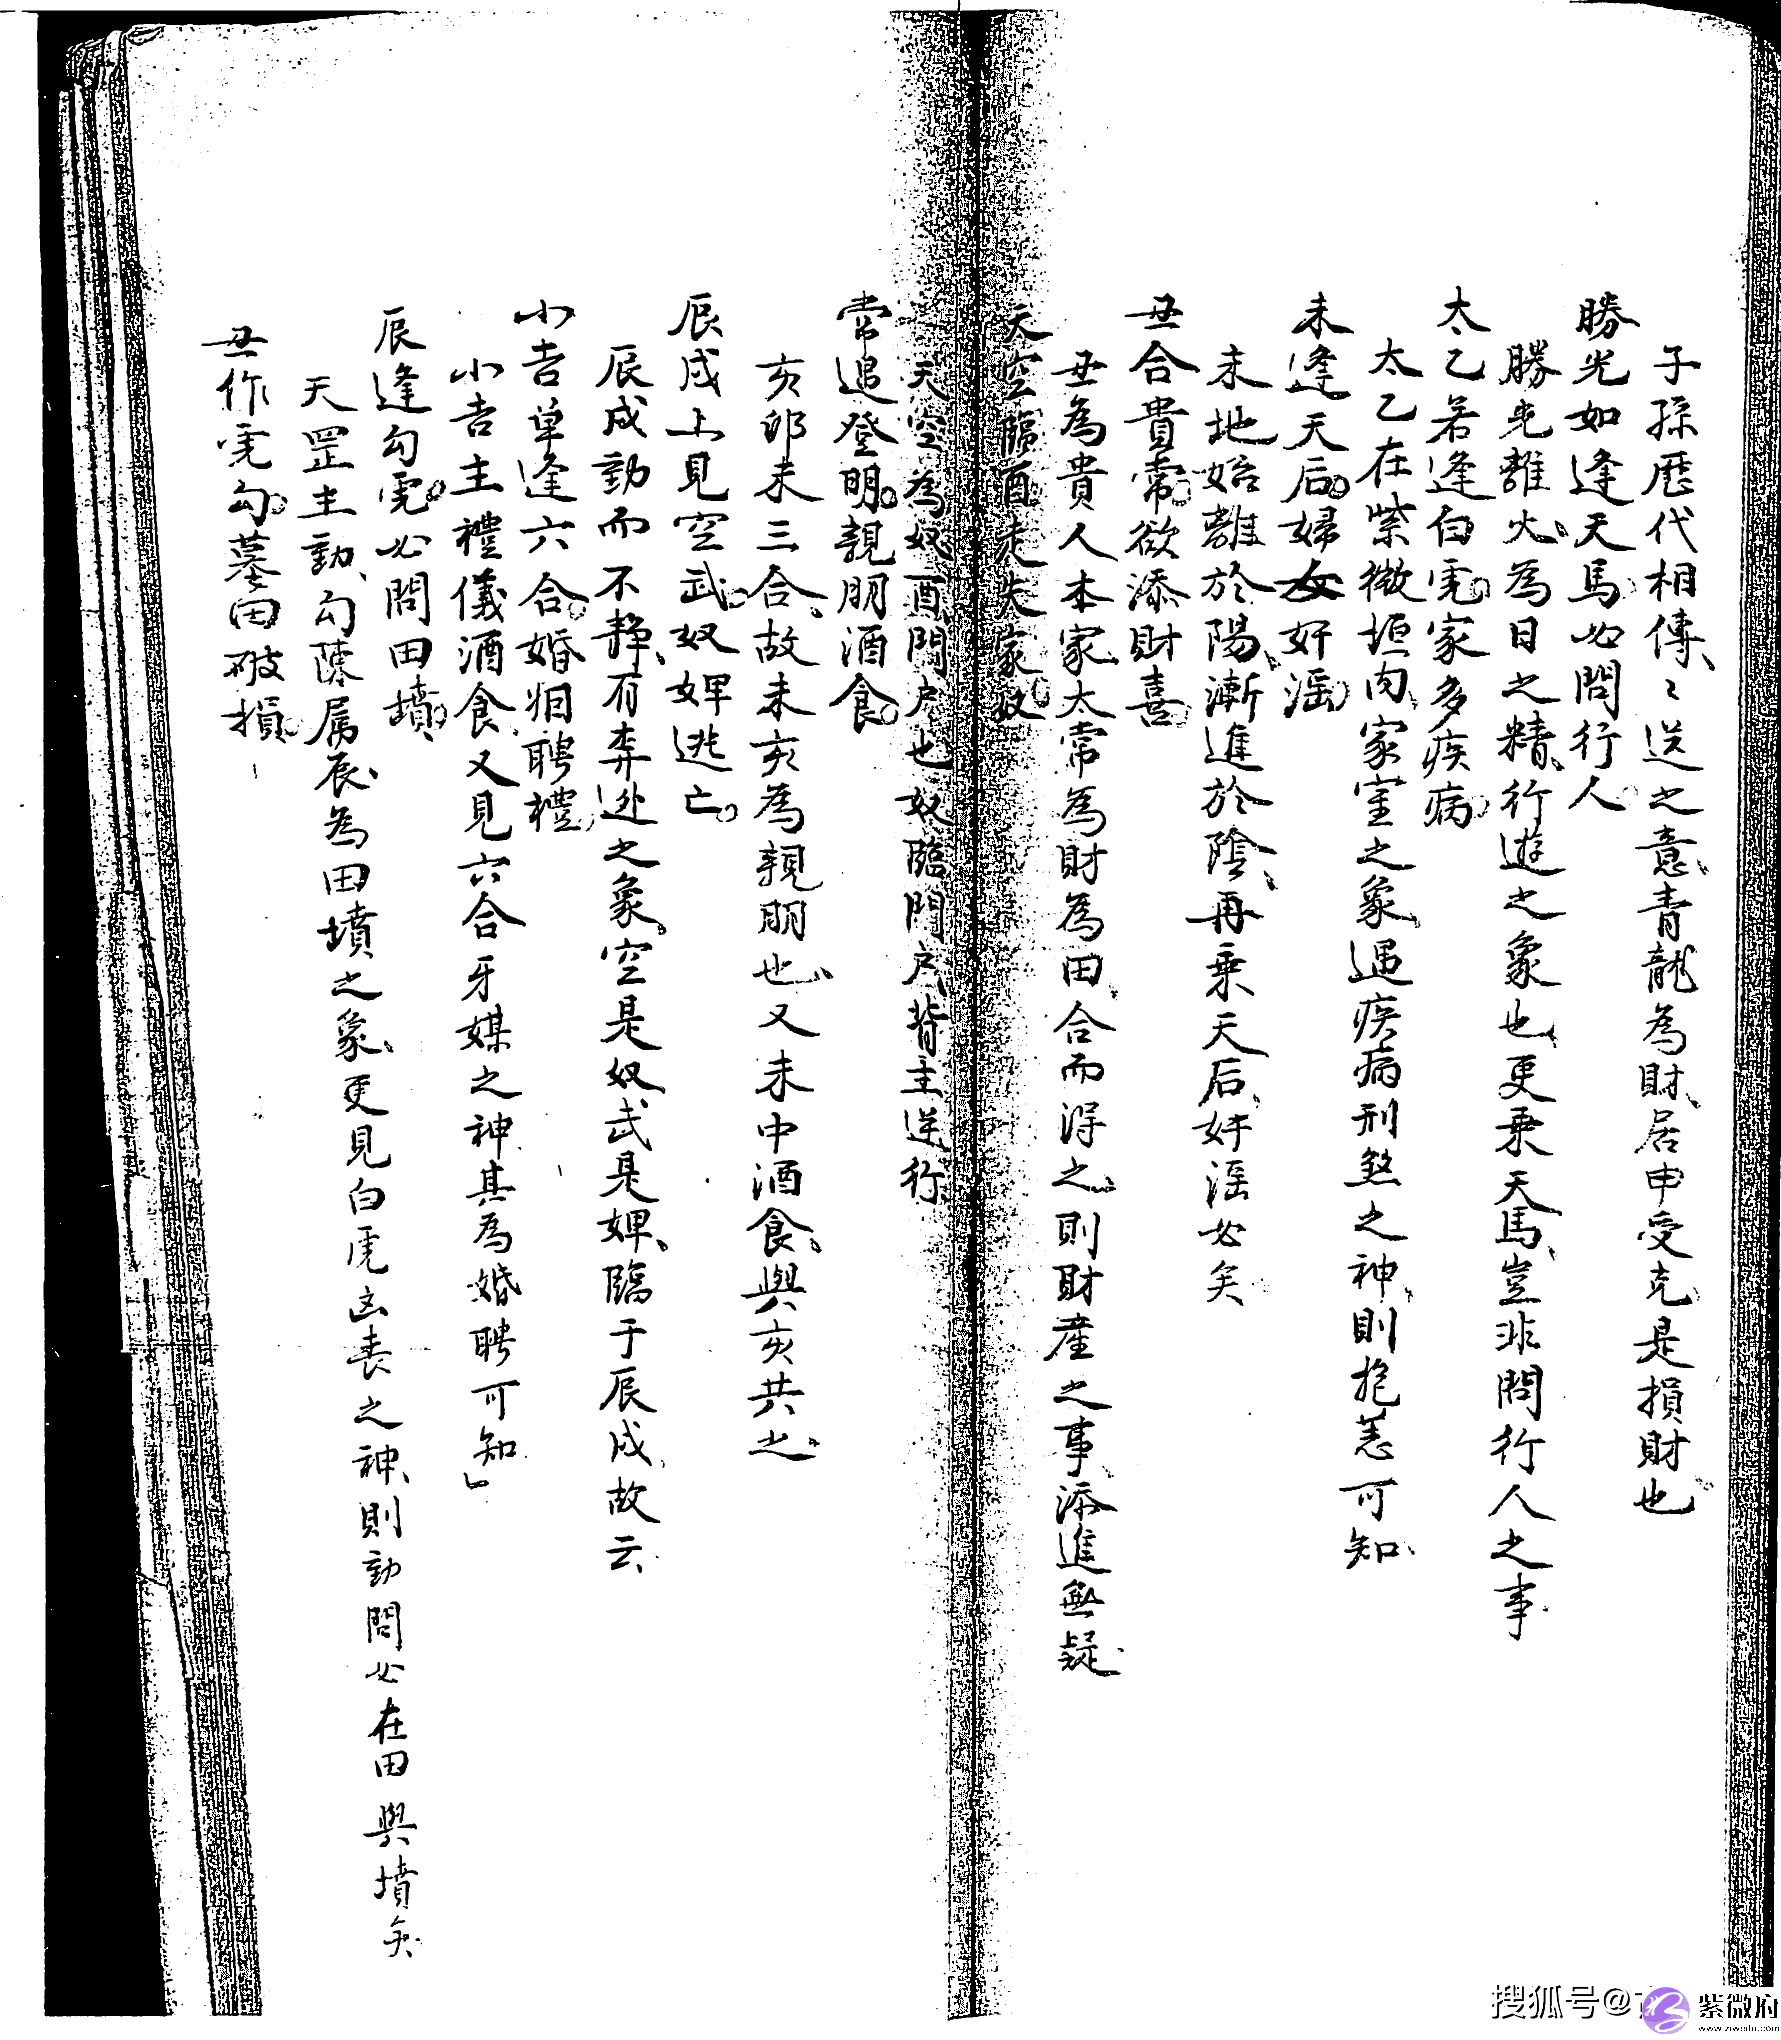 子孫歴代相傳、〻送之意、青龍為財、居申受克、是損財也
勝光如逢天馬、必問行人
勝光離火、為日之精、行遊之象也、更乗天馬、豈非問行人之事
太乙若逢白虎、家多疾病
太乙在紫微垣内、家室之象、遇疾病刑煞之神、則抱恙可知、
未逢天后、婦女奸滛
未地始離於陽、漸進於陰、再乗天后、奸滛必矣
丑合貴常、欲添財喜
丑為貴人本家、太常為財為田、合而得之、則財產之事、添進無疑、
天空臨酉、走失家奴
天空為奴、酉門户也、奴臨門户、背主逆行
常遇登明、親朋酒食
亥卯未三合、故未亥為親朋也、又未中酒食、與亥共之、
辰戌上見空武、奴婢逃亡
辰戌動而不静、有奔逊之象、空是奴、武是婢、臨于辰戌、故云、
小吉単逢六合、婚姻聘禮
小吉主禮儀酒食、又見六合牙媒之神、其為婚聘可知」
辰逢勾虎、必問田墳、
天罡主動、勾陳属辰、為田墳之象、更見白虎凶喪之神、則動問必在田與墳矣
丑作虎勾、墓田破損
搜狐号@
紫微府
www.ziweifu.com